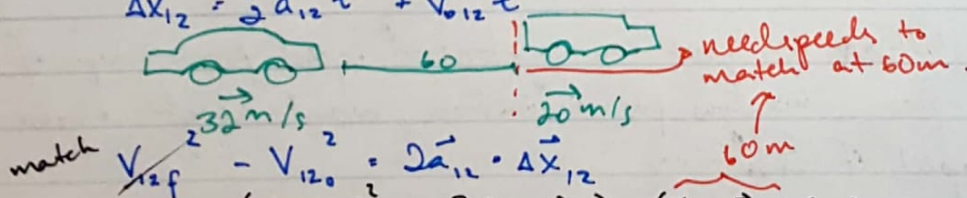 Δx₁₂ = 2 a₁₂ t + V₀₁₂ t
60
need speeds to
match at 60m.
32 m/s
20 m/s
60m
match V₁₂f² - V₁₂₀² = 2a⃗₁₂ · Δx⃗₁₂